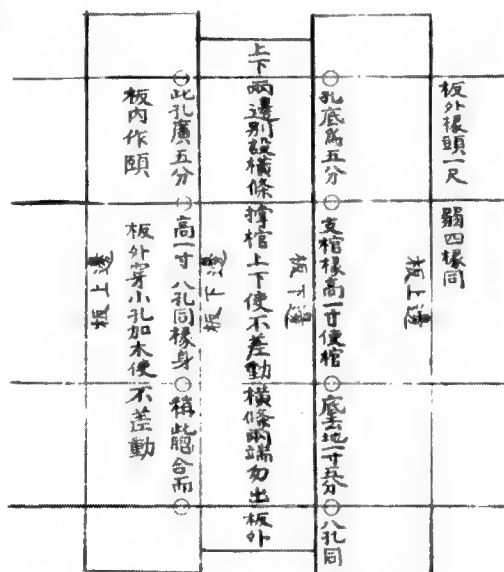 板外樣頭一尺 弱四樣同
板上邊
○孔底爲五分○支棺樣高一寸使棺○底去地一寸五分○八孔同
板下邊
上下兩邊別設橫條撑棺上下使不差動橫條兩端勿出板外
板下邊
○此孔廣五分○高一寸 八孔同樣身○稍此合而○
板內作頤 板外穿小孔加木使不差動
板上邊